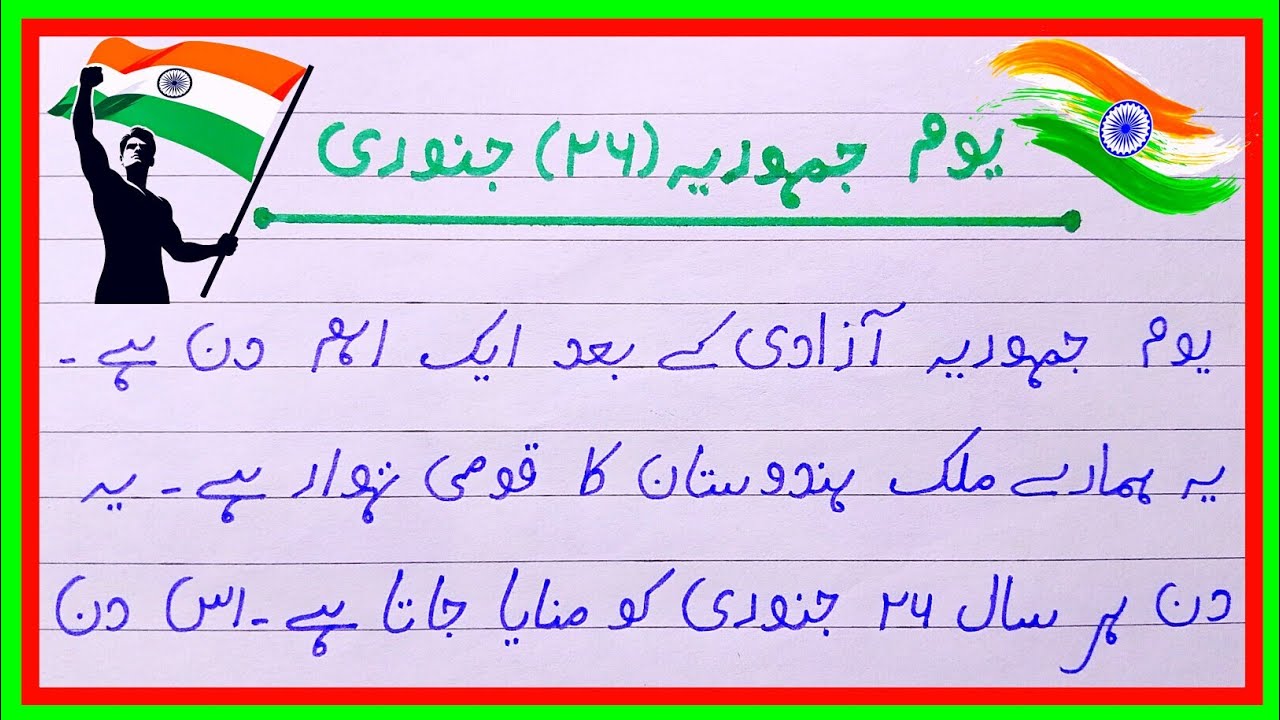 یوم جمہوریہ (۲۶) جنوری
یوم جمہوریہ آزادی کے بعد ایک اہم دن ہے۔
یہ ہمارے ملک ہندوستان کا قومی تہوار ہے۔ یہ
دن ہر سال ۲۶ جنوری کو منایا جاتا ہے۔ اس دن